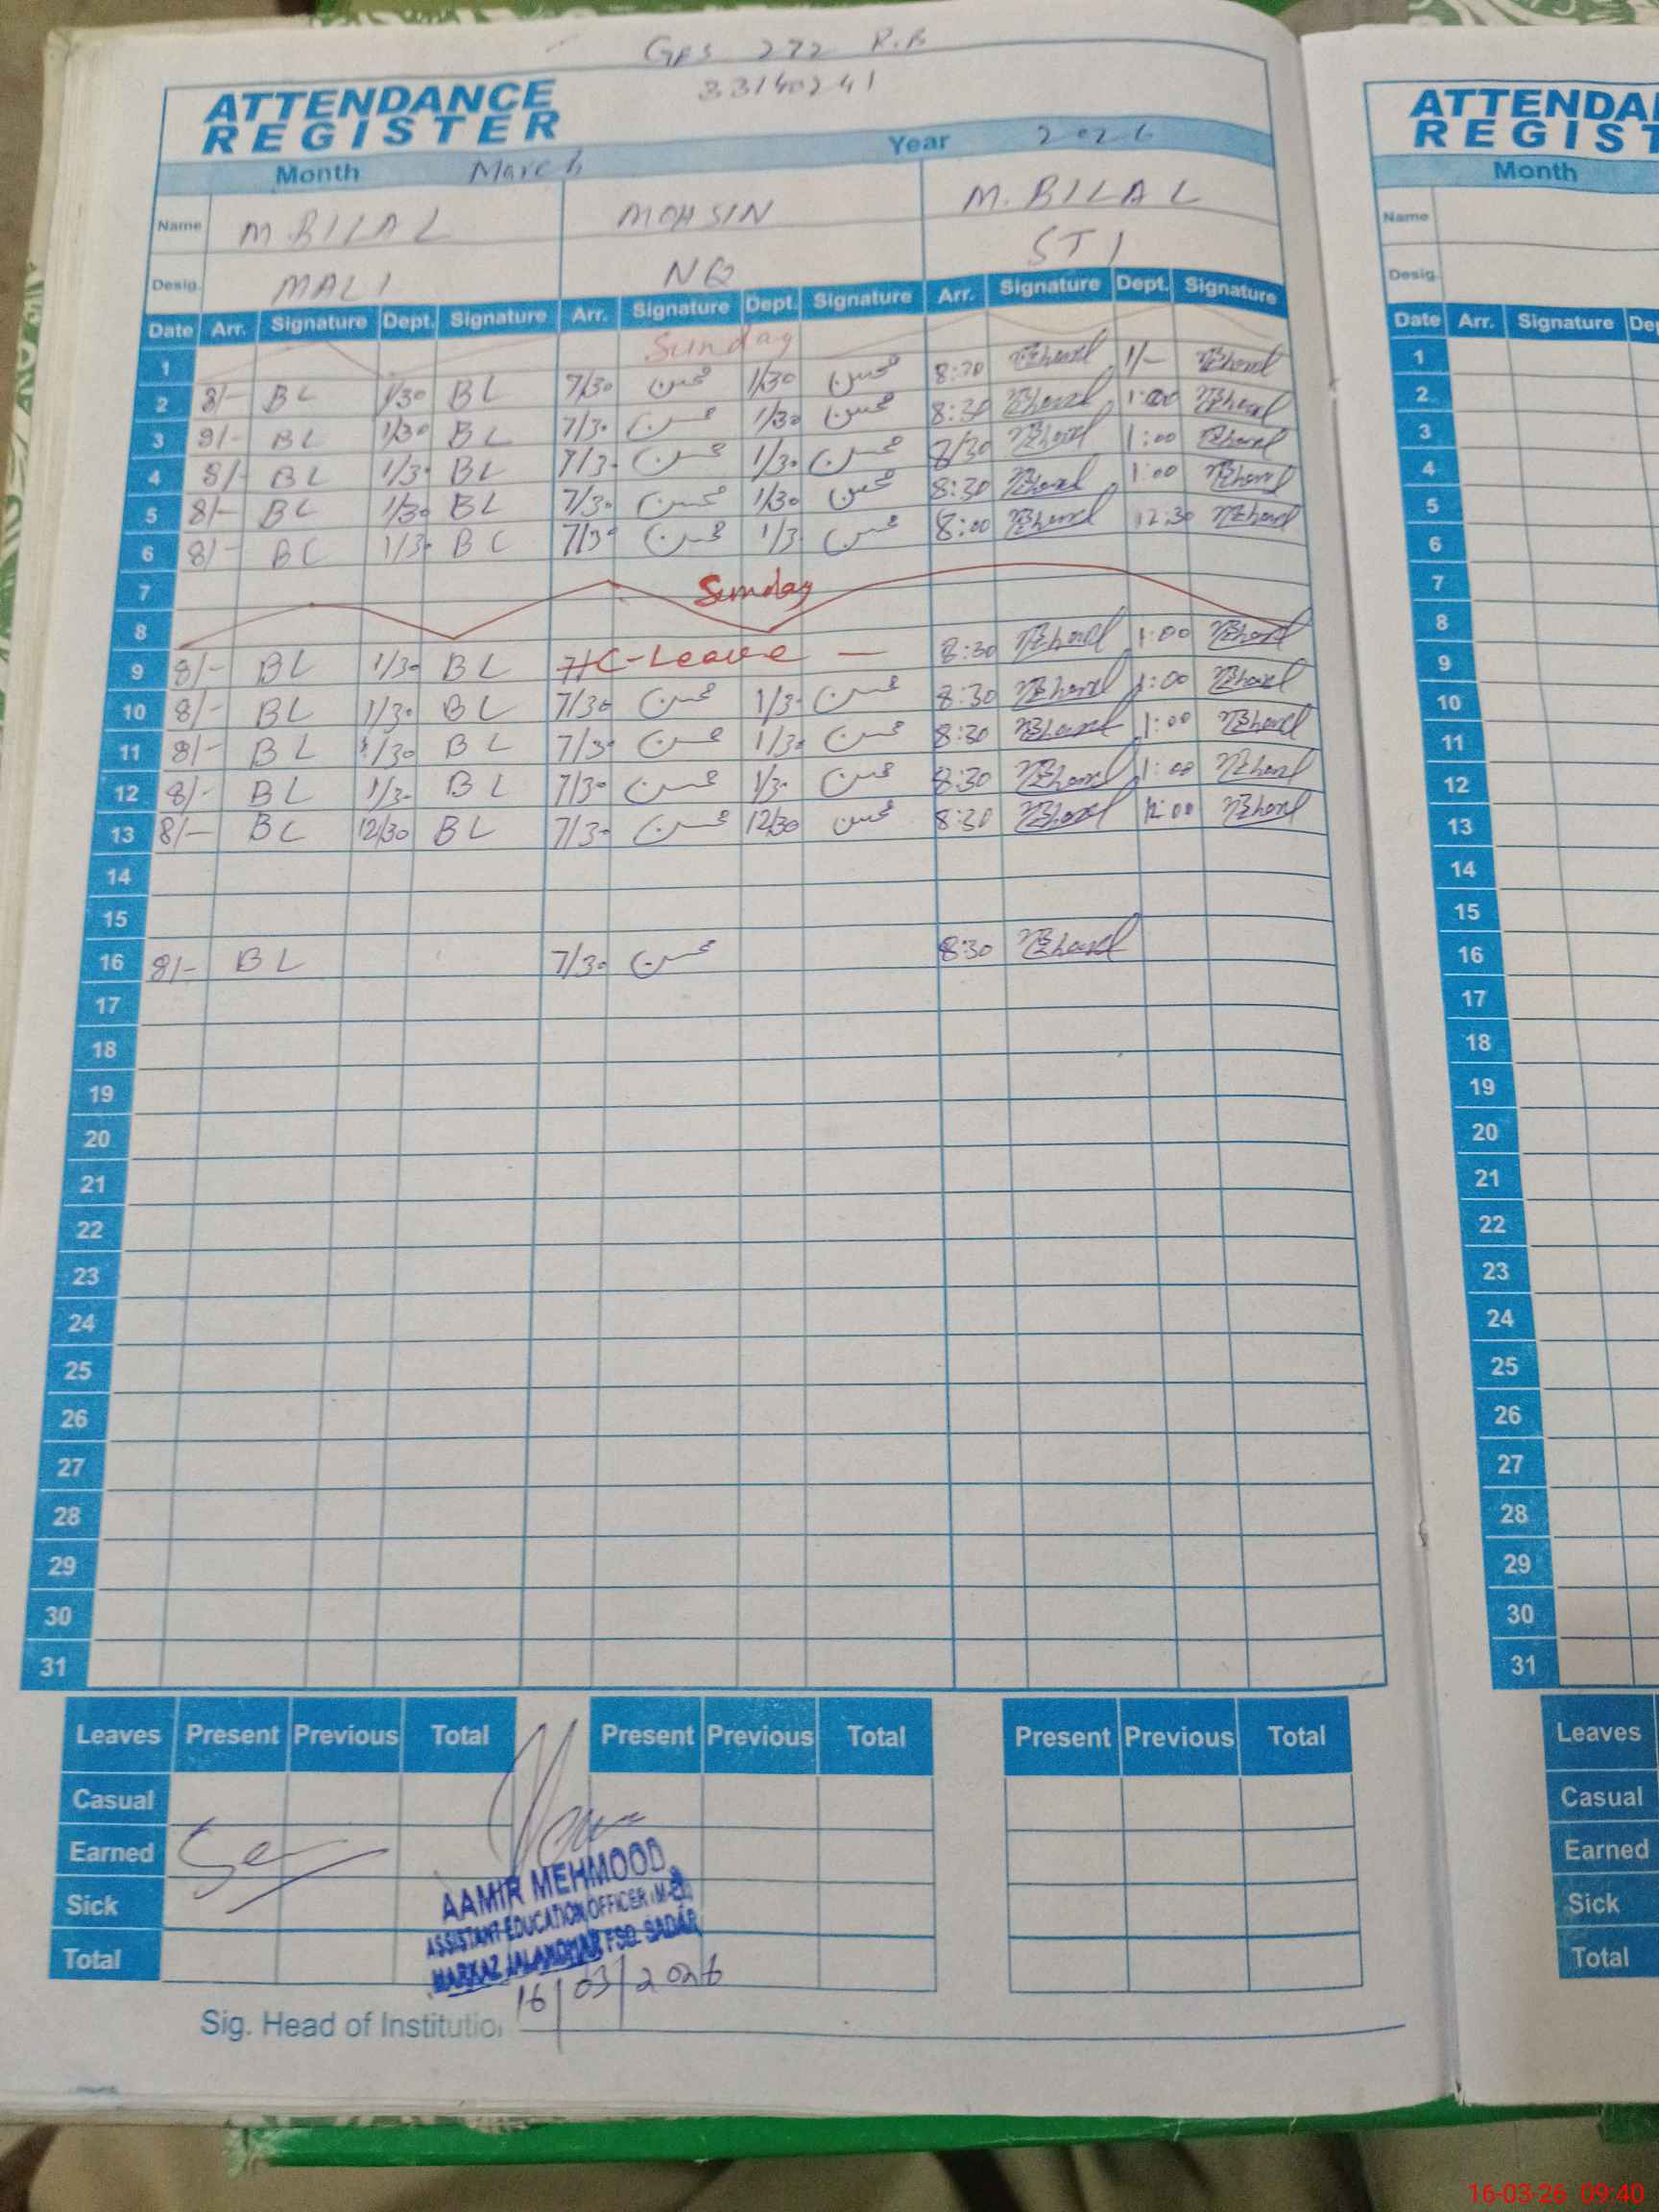 GPS 272 R.B
33140241
ATTENDANCE
REGISTER
Month March Year 2026
Name M.BILAL MOHSIN M.BILAL
Desig. MALI NQ STI
Date Arr. Signature Dept. Signature Arr. Signature Dept. Signature Arr. Signature Dept. Signature
1 Sunday
2 8/- BL 1/30 BL 7/30 محسن 1/30 محسن 8:30 1/-
3 8/- BL 1/30 BL 7/30 محسن 1/30 محسن 8:30 1:00
4 8/- BL 1/30 BL 7/30 محسن 1/30 محسن 8/30 1:00
5 8/- BL 1/30 BL 7/30 محسن 1/30 محسن 8:30 1:00
6 8/- BL 1/30 BL 7/30 محسن 1/3 محسن 8:00 12:30
7 Sunday
8
9 8/- BL 1/30 BL C-Leave — 8:30 1:00
10 8/- BL 1/30 BL 7/30 محسن 1/30 محسن 8:30 1:00
11 8/- BL 1/30 BL 7/30 محسن 1/30 محسن 8:30 1:00
12 8/- BL 1/30 BL 7/30 محسن 1/30 محسن 8:30 1:00
13 8/- BL 12/30 BL 7/30 محسن 12/30 محسن 8:30 12:00
14
15
16 8/- BL 7/30 محسن 8:30
17
18
19
20
21
22
23
24
25
26
27
28
29
30
31
Leaves Present Previous Total Present Previous Total Present Previous Total
Casual
Earned
Sick
Total
AAMIR MEHMOOD
ASSISTANT EDUCATION OFFICER (M-EE)
MARKAZ JALANDHAR FSD. SADAR
16/03/2026
Sig. Head of Institution
ATTENDA
REGIST
Month
Name
Desig.
Date Arr. Signature De
1
2
3
4
5
6
7
8
9
10
11
12
13
14
15
16
17
18
19
20
21
22
23
24
25
26
27
28
29
30
31
Leaves
Casual
Earned
Sick
Total
16-03-26 09:40